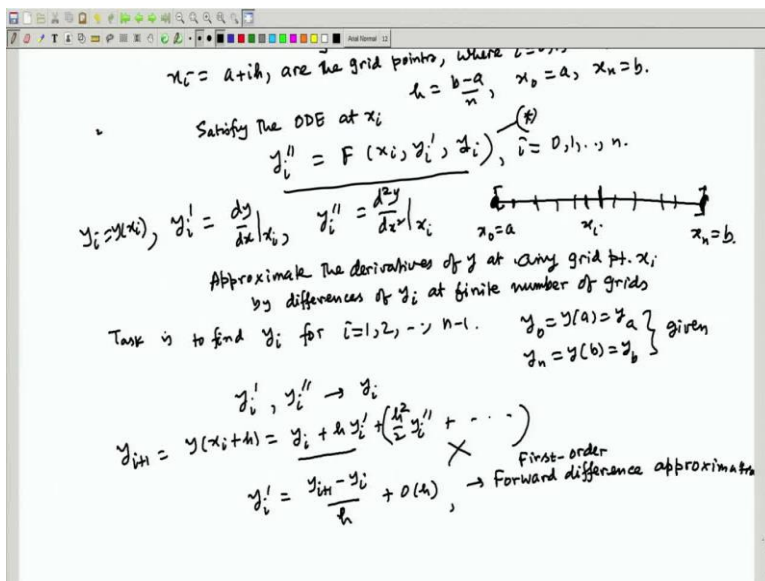 xᵢ = a+ih, are the grid points, where i=0,1
h = b-a/n, x₀ = a, xₙ = b.
Satisfy the ODE at xᵢ
(*)
yᵢ'' = F(xᵢ, yᵢ', yᵢ), i = 0,1,..,n.
yᵢ=y(xᵢ), yᵢ' = dy/dx|xᵢ, yᵢ'' = d²y/dx²|xᵢ
x₀=a xᵢ xₙ=b.
Approximate the derivatives of y at any grid pt. xᵢ
by differences of yᵢ at finite number of grids
Task is to find yᵢ for i=1,2,--, n-1. y₀=y(a)=yₐ } given
yₙ=y(b)=y_b
yᵢ', yᵢ'' → yᵢ
yᵢ₊₁ = y(xᵢ+h) = yᵢ + h yᵢ' + (h²/2 yᵢ'' + ----)
yᵢ' = yᵢ₊₁ - yᵢ/h + O(h), → First-order
Forward difference approximatn
Arial Normal 12